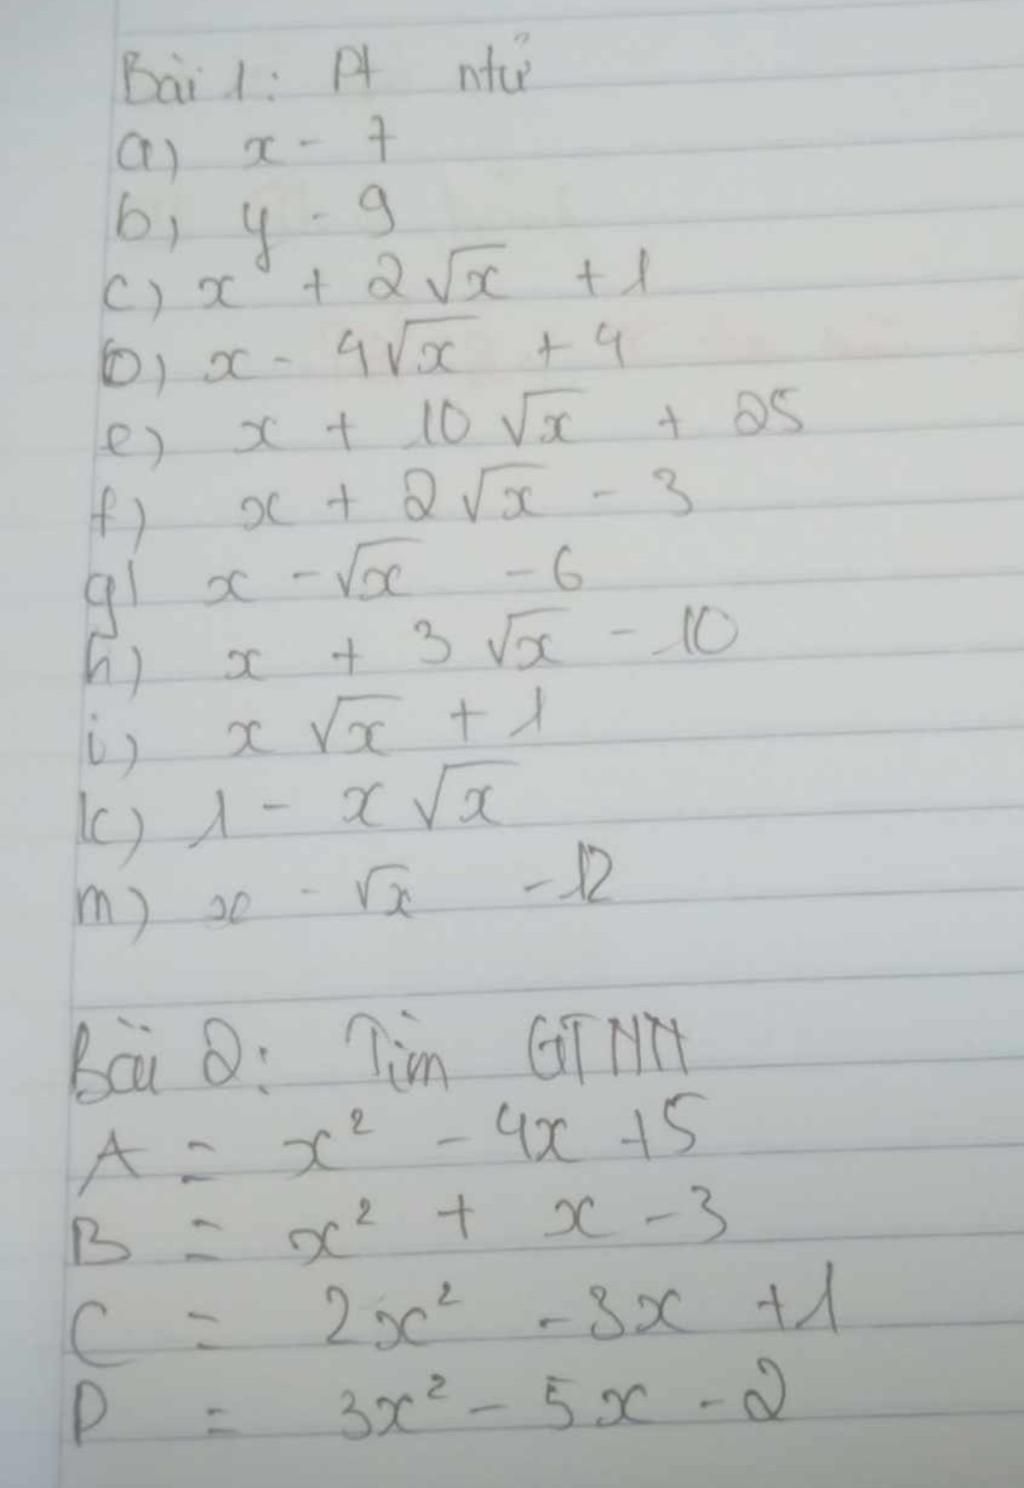 Bài 1: Pt ntử
a) x - 7
b) y - 9
c) x + 2√x + 1
D) x - 4√x + 4
e) x + 10√x + 25
f) x + 2√x - 3
g) x - √x - 6
h) x + 3√x - 10
i) x√x + 1
k) 1 - x√x
m) x - √x - 12
Bài 2: Tìm GTNN
A = x² - 4x + 5
B = x² + x - 3
C = 2x² - 3x + 1
D = 3x² - 5x - 2